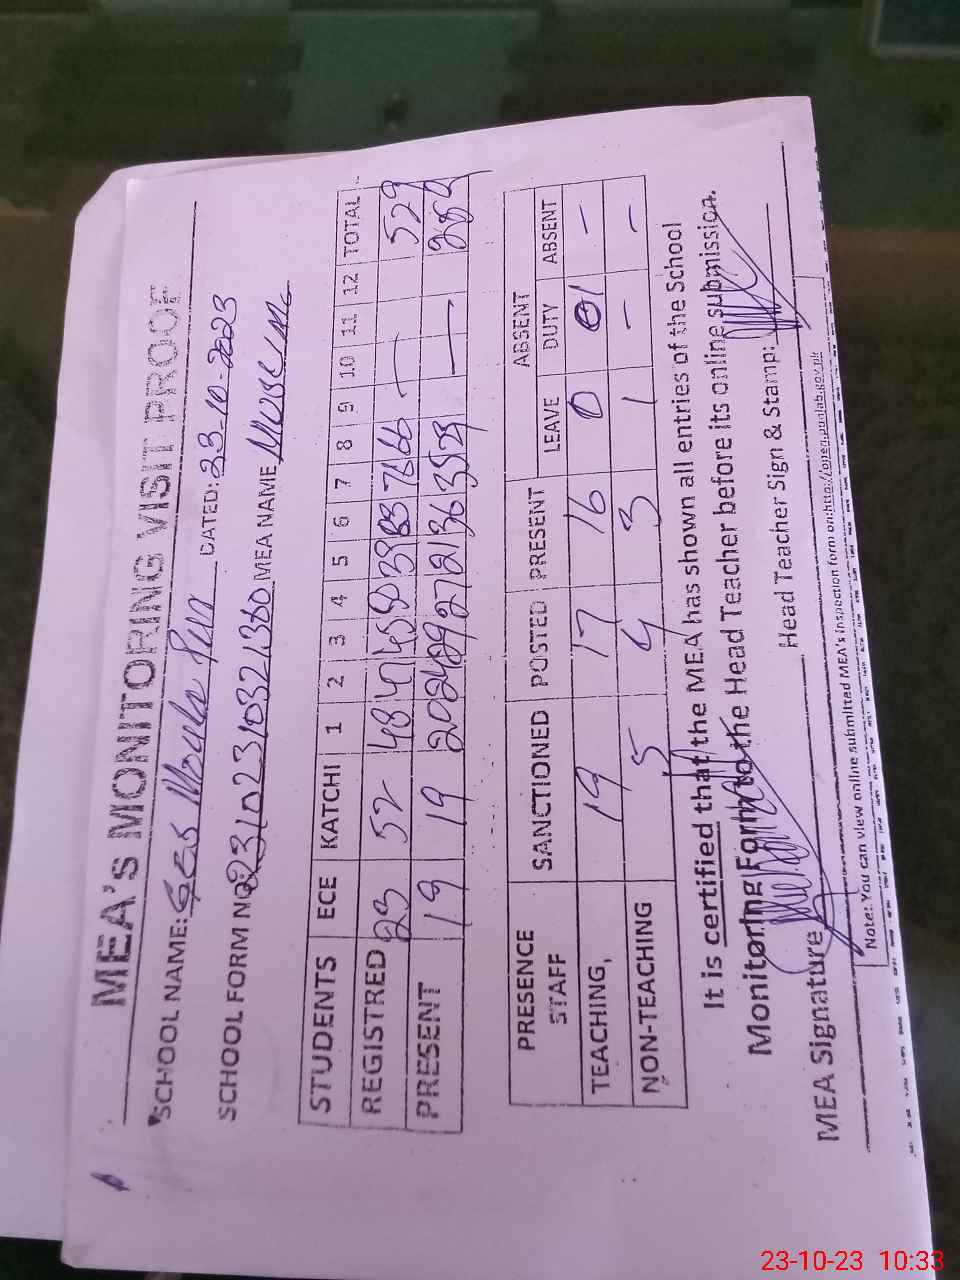 MEA's MONITORING VISIT PROOF
SCHOOL NAME: GES DATED: 23-10-2023
SCHOOL FORM NO: MEA NAME
STUDENTS ECE KATCHI 1 2 3 4 5 6 7 8 9 10 11 12 TOTAL
REGISTRED 23 52 48 47 45 76 66 — 529
PRESENT 19 19 20 27 21 36 35 —
PRESENCE STAFF SANCTIONED POSTED PRESENT ABSENT
LEAVE DUTY ABSENT
TEACHING, 19 17 16 0 01 -
NON-TEACHING 5 4 3 1 - -
It is certified that the MEA has shown all entries of the School
Monitoring Form to the Head Teacher before its online submission.
MEA Signature Head Teacher Sign & Stamp:
Note: You can view online submitted MEA's inspection form on:http://open.punjab.gov.pk
23-10-23 10:33